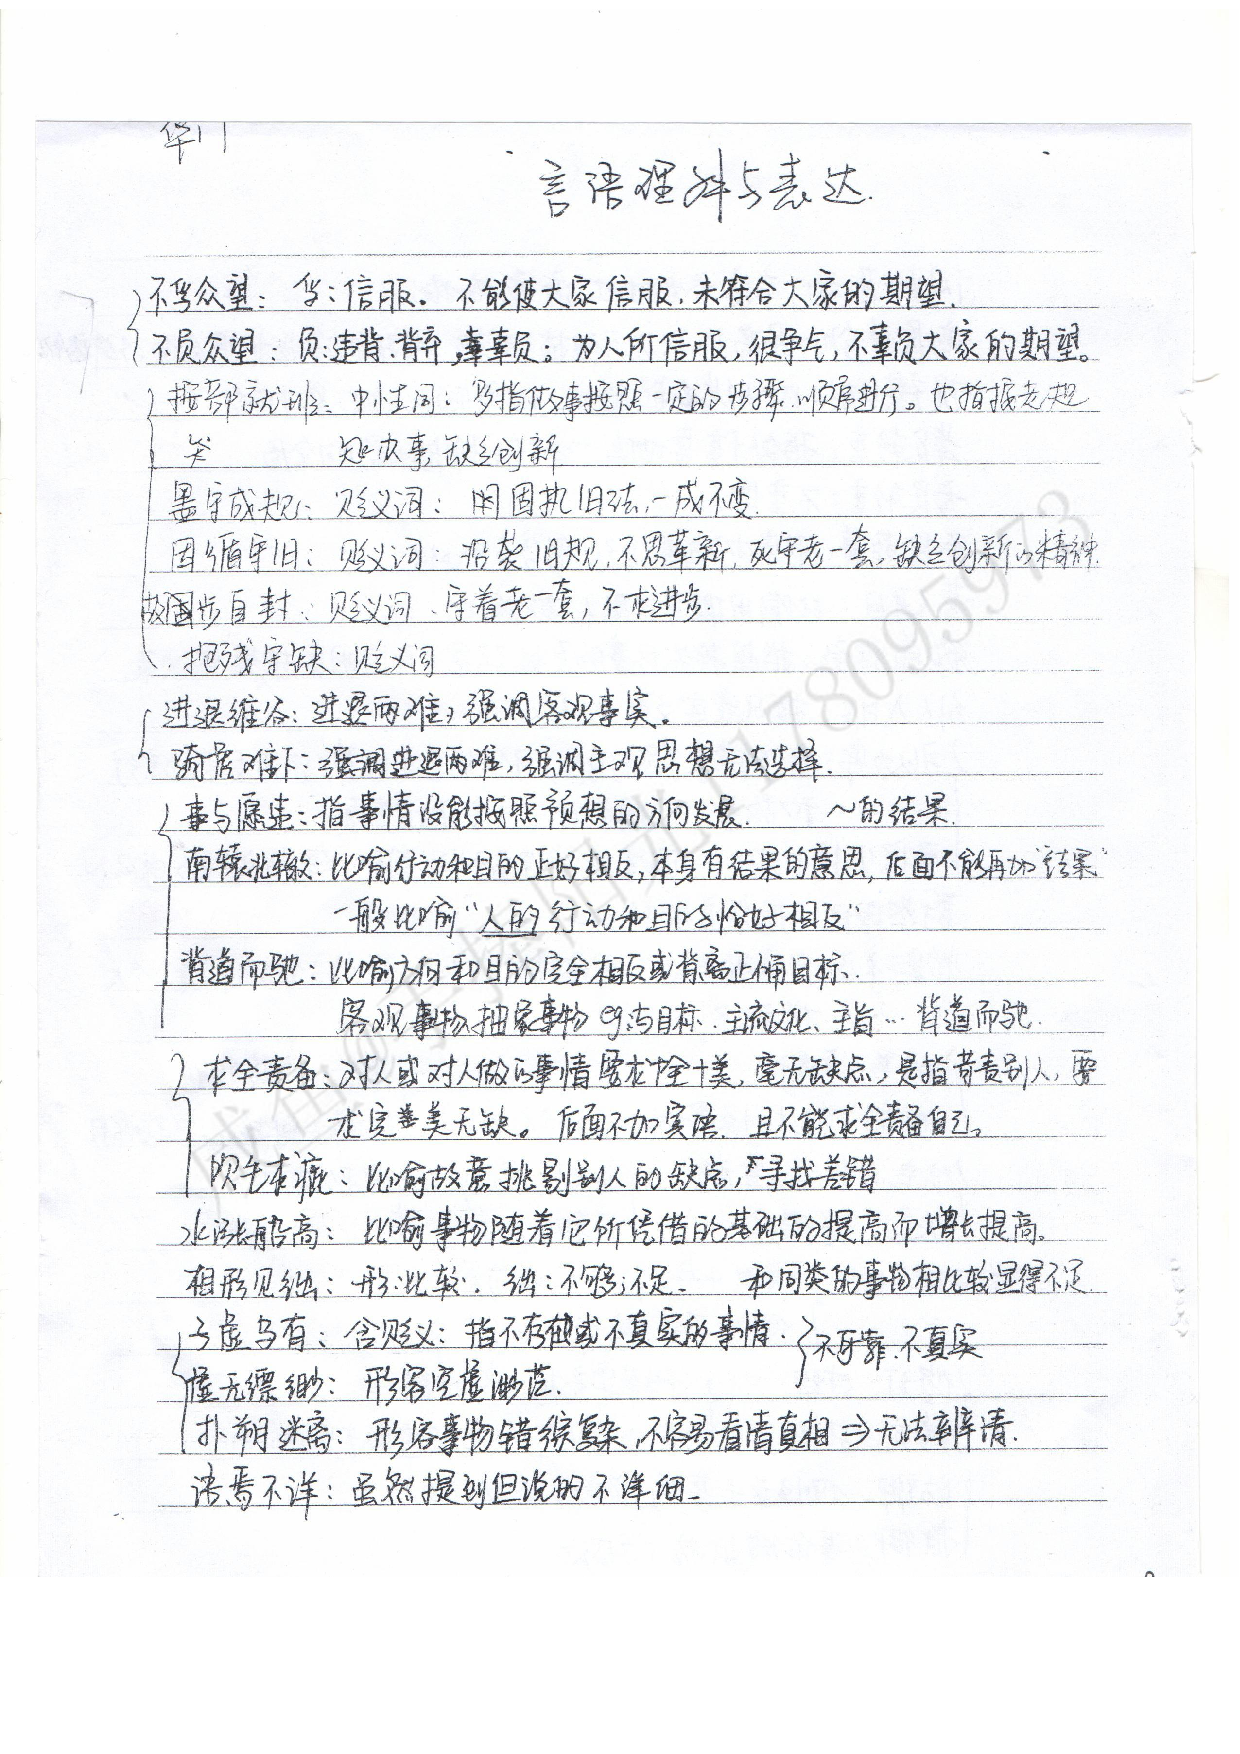 华门
言语理解与表达.
不孚众望：孚：信服。不能使大家信服，未符合大家的期望.
不负众望：负：违背、背弃，辜负；为人所信服，很争气，不辜负大家的期望。
按部就班：中性词：多指做事按照一定的步骤、顺序进行。也指按老规
矩办事，缺乏创新
墨守成规：贬义词：固执旧法，一成不变.
因循守旧：贬义词：沿袭旧规，不思革新，死守老一套，缺乏创新的精神.
故固步自封：贬义词、守着老一套，不求进步.
抱残守缺：贬义词
进退维谷：进退两难，强调客观事实。
骑虎难下：强调进退两难，强调主观思想无法选择.
事与愿违：指事情没能按照预想的方向发展. ～的结果.
南辕北辙：比喻行动和目的正好相反，本身有结果的意思，后面不能再加“结果”
一般比喻“人的行动和目的恰好相反”
背道而驰：比喻方向和目的完全相反或背离正确目标.
客观事物、抽象事物 eg：与目标、主流文化、主旨…背道而驰.
求全责备：对人或对人做的事情要求十全十美，毫无缺点，是指苛责别人，要
求完美无缺。后面不加宾语，且不能求全责备自己。
吹毛求疵：比喻故意挑剔别人的缺点，寻找差错
水涨船高：比喻事物随着它所凭借的基础的提高而增长提高。
相形见绌：形：比较. 绌：不够；不足. 和同类的事物相比较显得不足
子虚乌有：含贬义：指不存在或不真实的事情.
不可靠、不真实
虚无缥缈：形容空虚渺茫.
扑朔迷离：形容事物错综复杂，不容易看清真相⇒无法辨清.
语焉不详：虽然提到但说的不详细.
咸鱼@手撑阳光1178095973